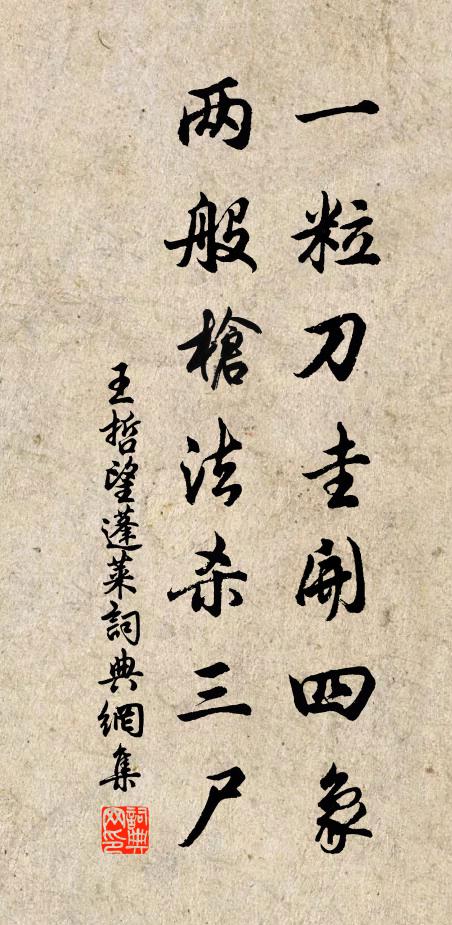 一粒刀圭開四象
两般槍法杀三尸
王哲望蓬萊詞典網集
詞典网印